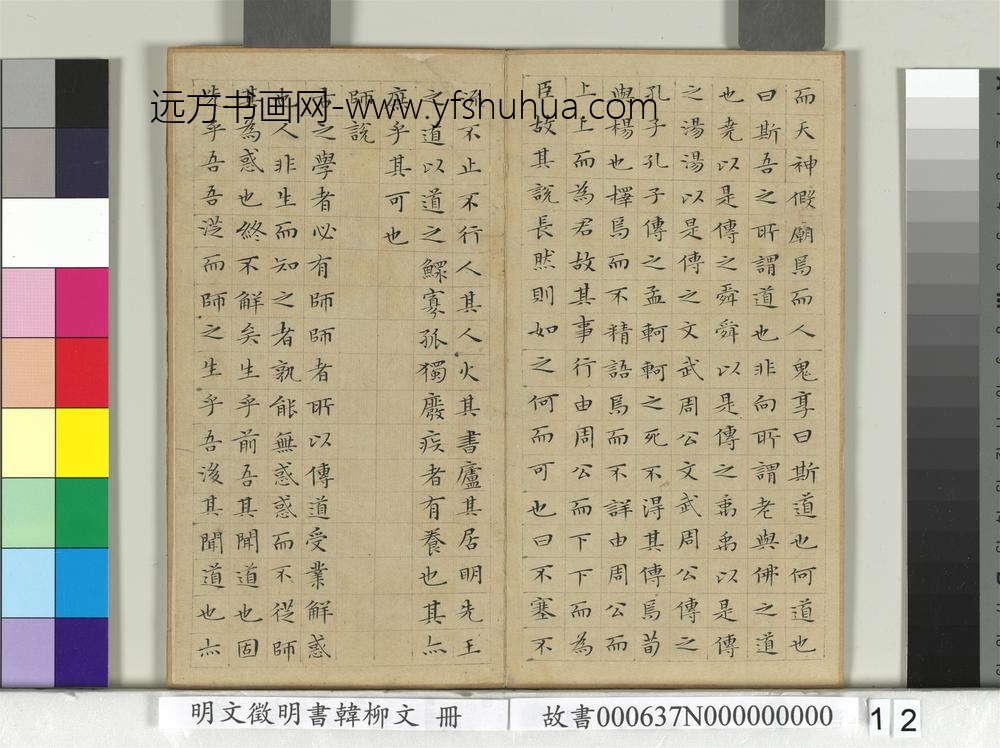 而天神假廟焉而人鬼享曰斯道也何道也
曰斯吾之所謂道也非向所謂老與佛之道
也堯以是傳之舜舜以是傳之禹禹以是傳
之湯湯以是傳之文武周公文武周公傳之
孔子孔子傳之孟軻軻之死不得其傳焉荀
與楊也擇焉而不精語焉而不詳由周公而
上上而為君故其事行由周公而下下而為
臣故其說長然則如之何而可也曰不塞不
流不止不行人其人火其書廬其居明先王
之道以道之鰥寡孤獨廢疾者有養也其亦
庶乎其可也
師說
之學者必有師師者所以傳道受業解惑
人非生而知之者孰能無惑惑而不從師
其為惑也終不解矣生乎前吾其聞道也固
乎吾吾從而師之生乎吾後其聞道也亦
远方书画网-www.yfshuhua.com
明文徵明書韓柳文 冊
故書000637N000000000
12